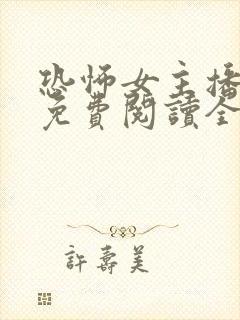 恐怖女主播
免費閱讀全
許壽美